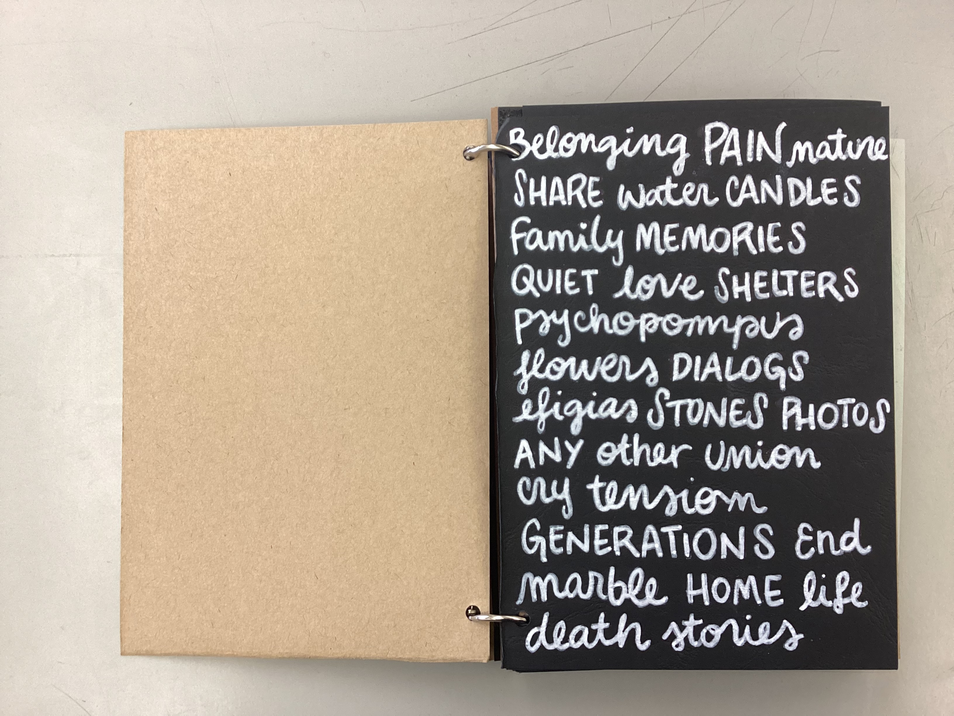 Belonging PAIN nature
SHARE water CANDLES
Family MEMORIES
QUIET love SHELTERS
psychopompus
flowers DIALOGS
efigias STONES PHOTOS
ANY other union
cry tension
GENERATIONS End
marble HOME life
death stories